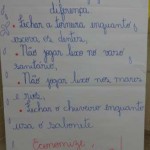 diferença
• Fechar a torneira enquanto
escova os dentes.
• Não jogar lixo no vaso
sanitário.
• Não jogar lixo nos mares
e rios.
• Fechar o chuveiro enquanto
usa o sabonete
Economize